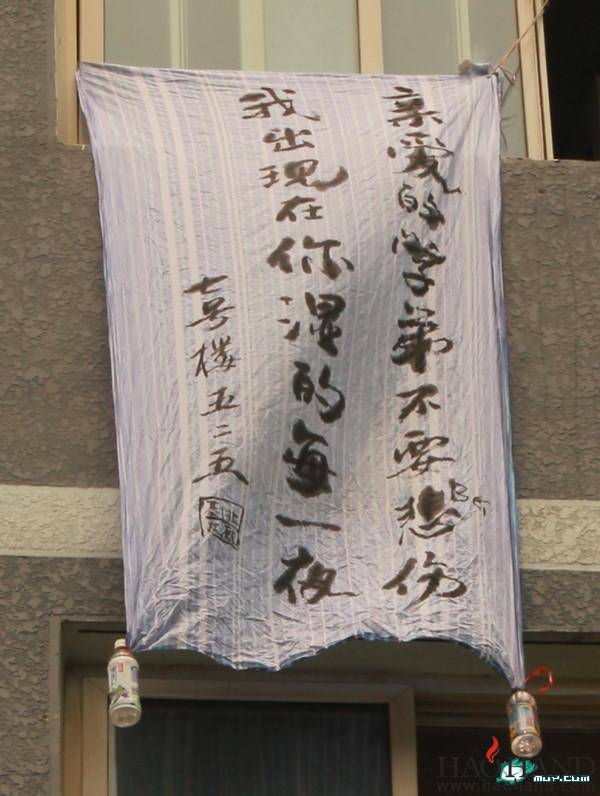 亲爱的学弟不要悲伤
我出现在你湿的每一夜
七号楼五二五
mop.com